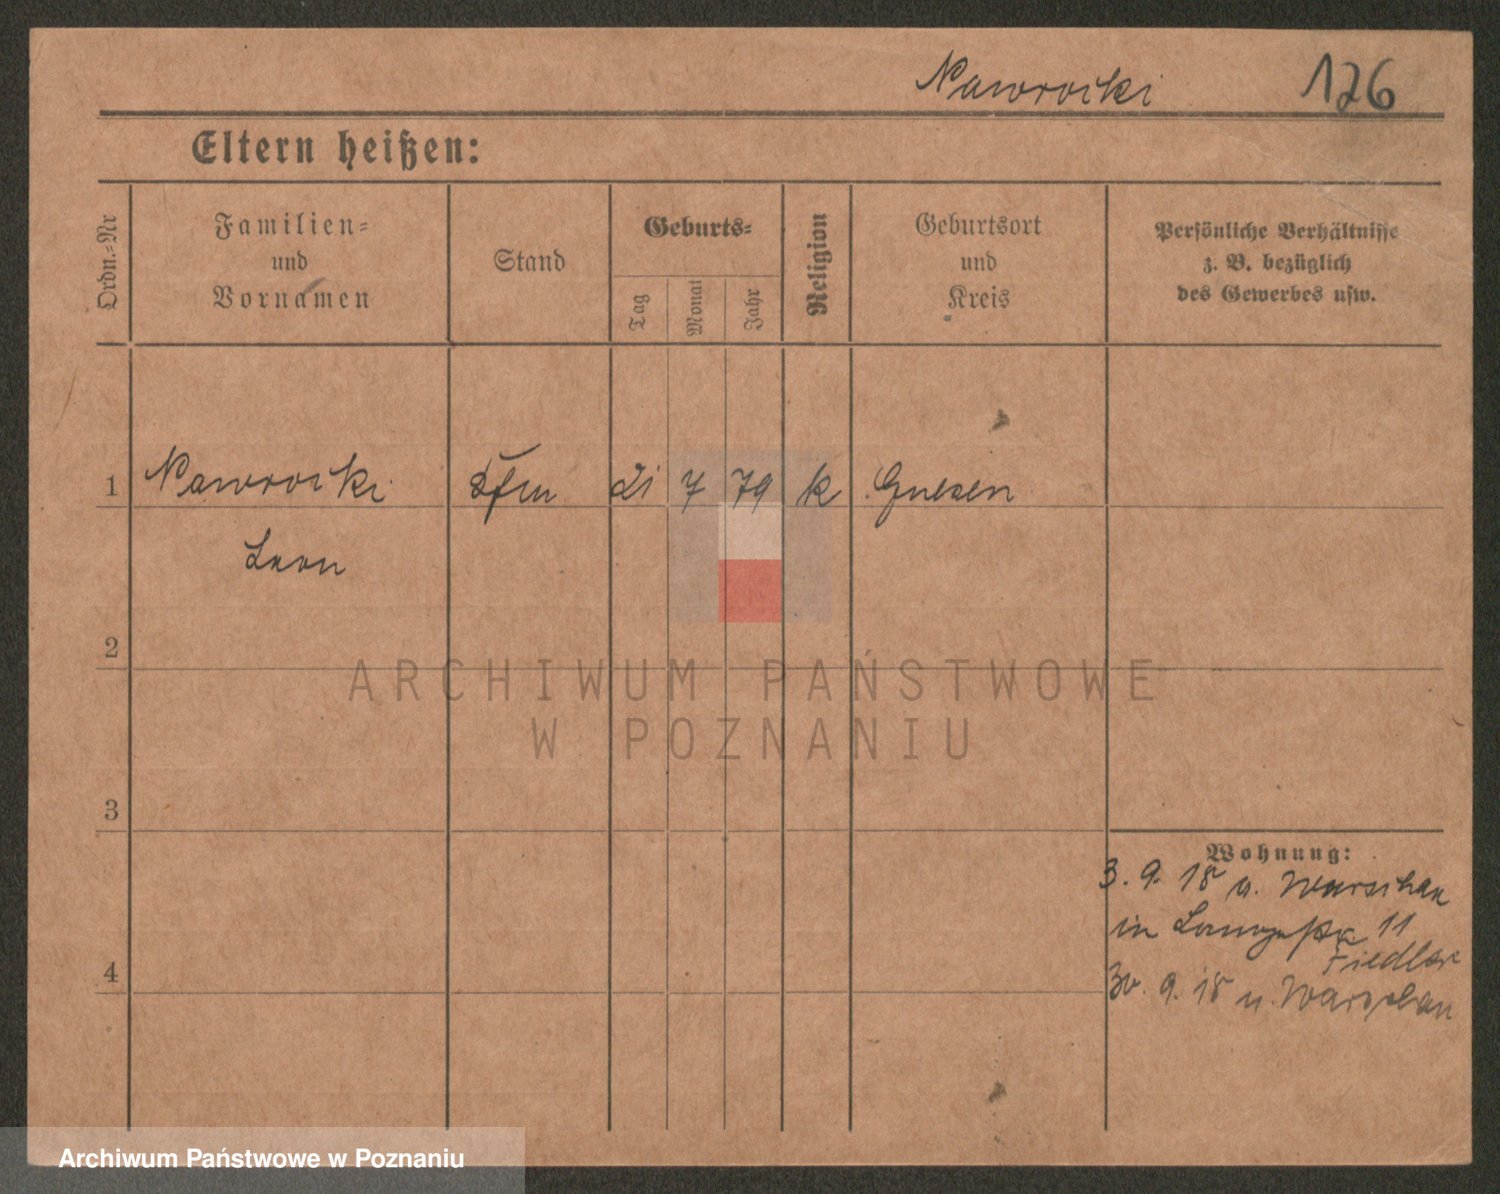 Nawrocki 176
Eltern heißen:
Ordn.-Nr
Familien-
und
Vornamen
Stand
Geburts-
Tag
Monat
Jahr
Religion
Geburtsort
und
Kreis
Persönliche Verhältnisse
z. B. bezüglich
des Gewerbes usw.
1 Nawrocki 21 7 79 k Gnesen
Leon
2
ARCHIWUM PAŃSTWOWE
W POZNANIU
3
Wohnung:
3. 9. 18 a. Warschau
in 11
Fiedler
4
30. 9. 18 n. Warschau
Archiwum Państwowe w Poznaniu